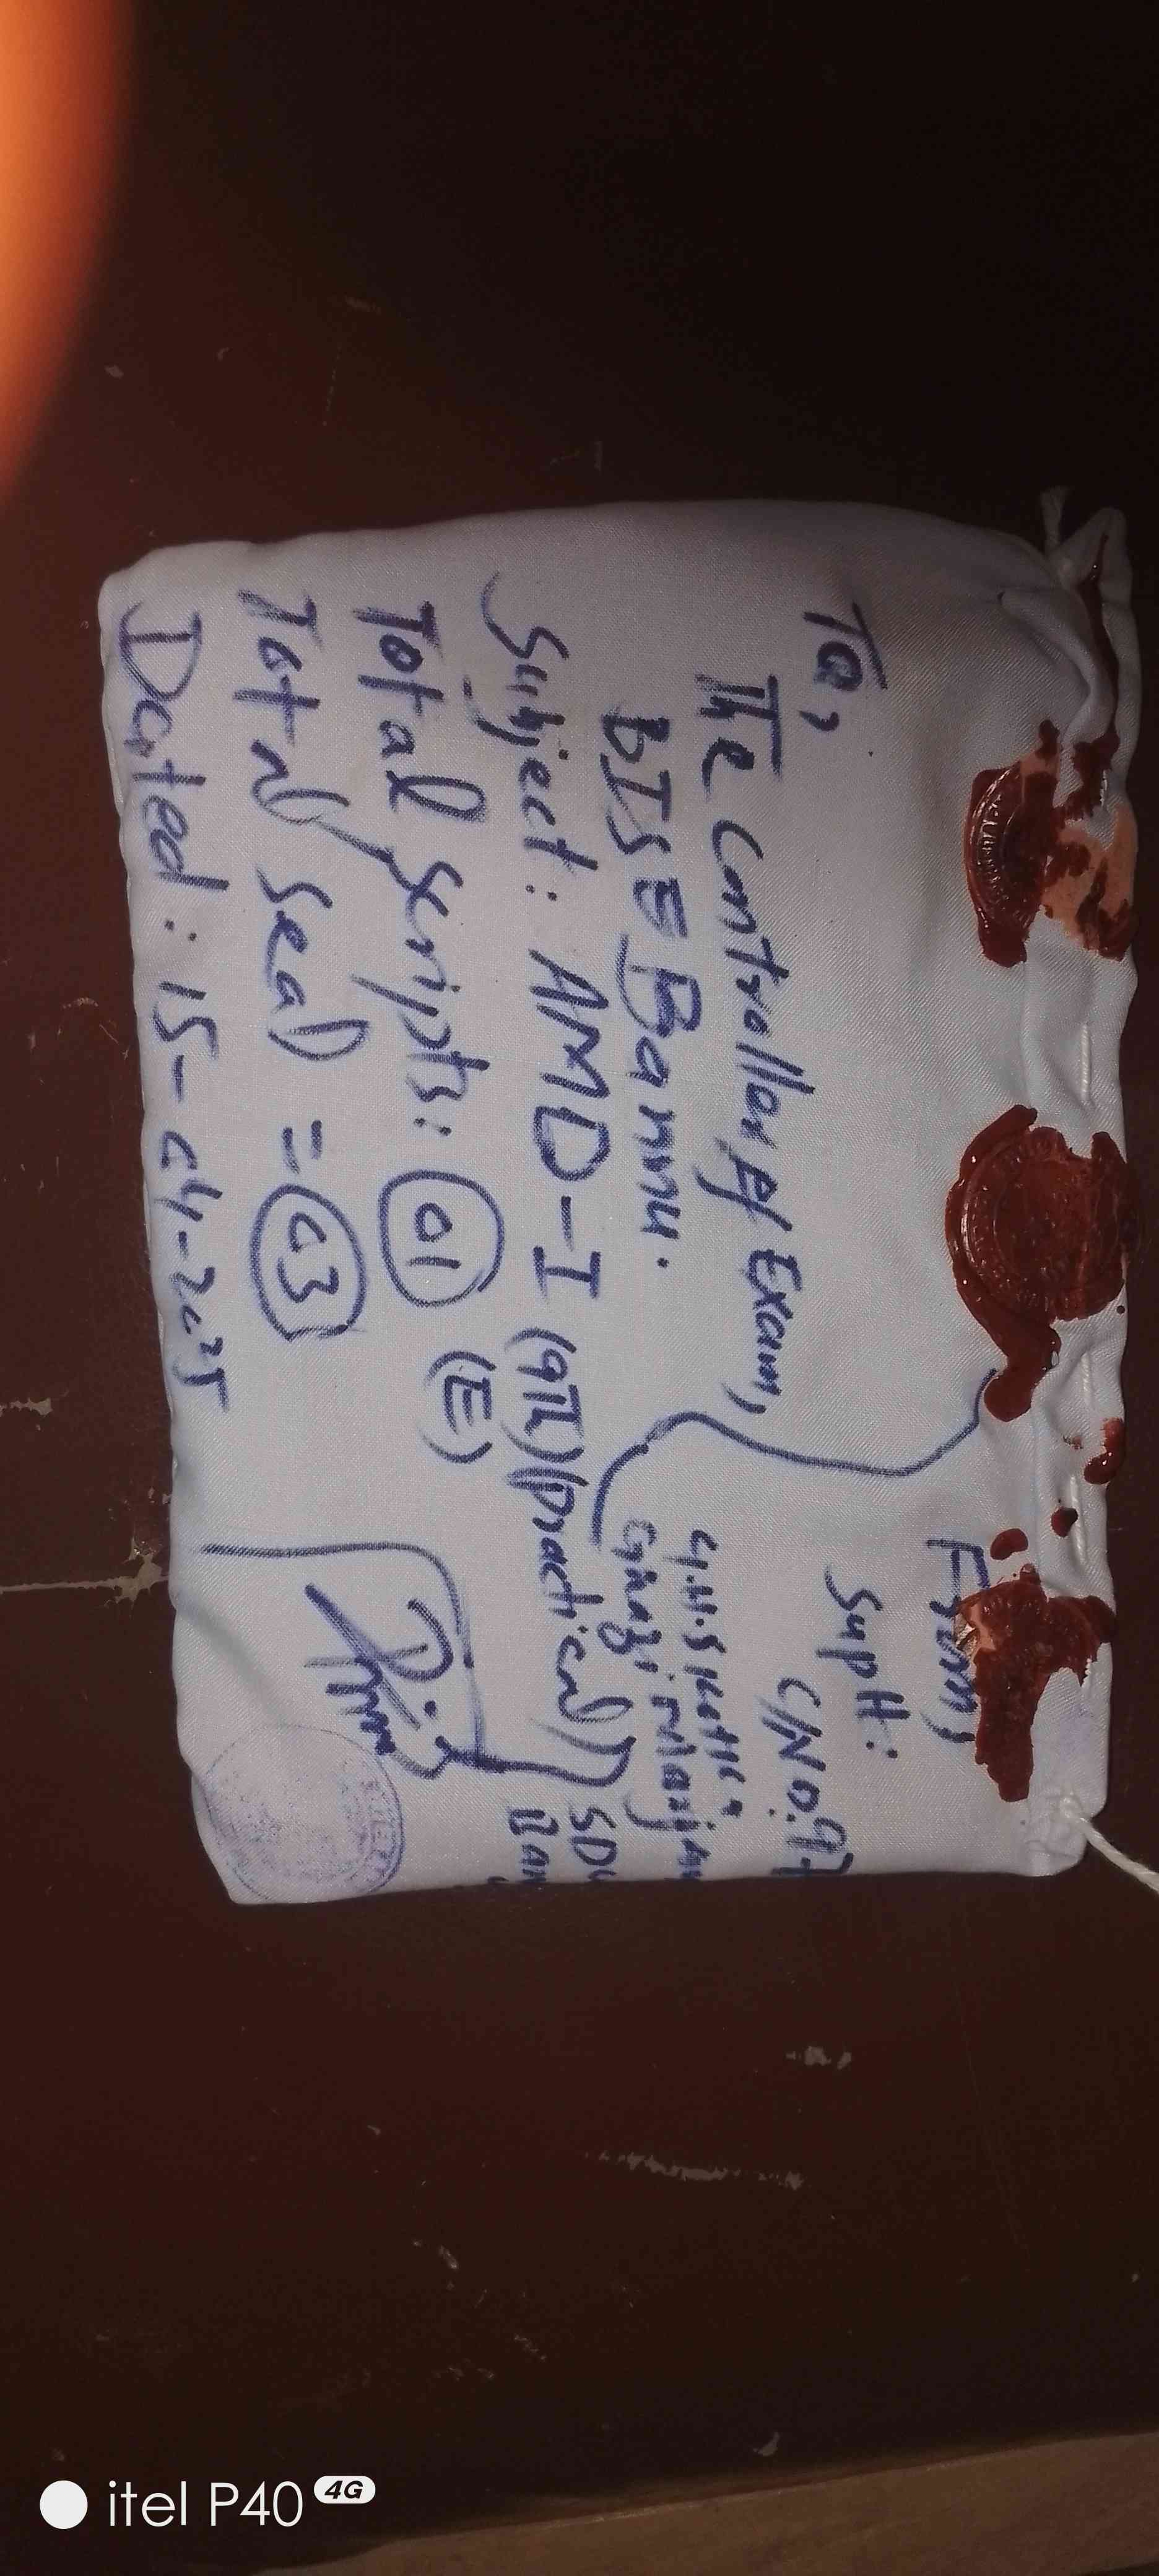 To,
The Controller of Exam,
BISE Bannu.
Subject: AMD-I (9th) (Practical)
Total scripts: 01 (E)
Total Seal = 03
Dated: 15-04-2025
From,
Supdt:
C/No. 97
itel P40 4G